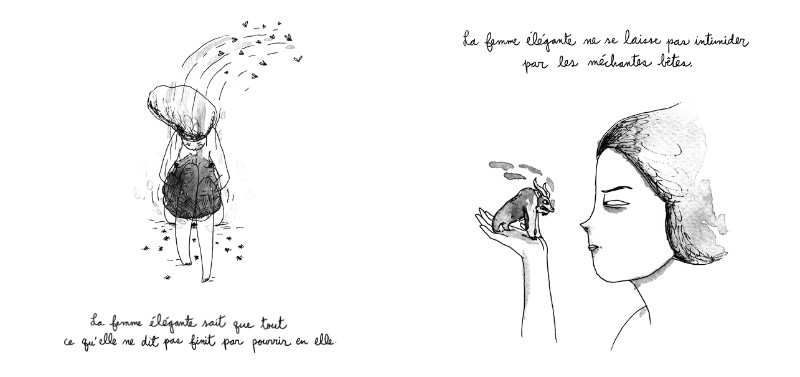 La femme élégante sait que tout
ce qu'elle ne dit pas finit par pourrir en elle.
La femme élégante ne se laisse pas intimider
par les méchantes bêtes.